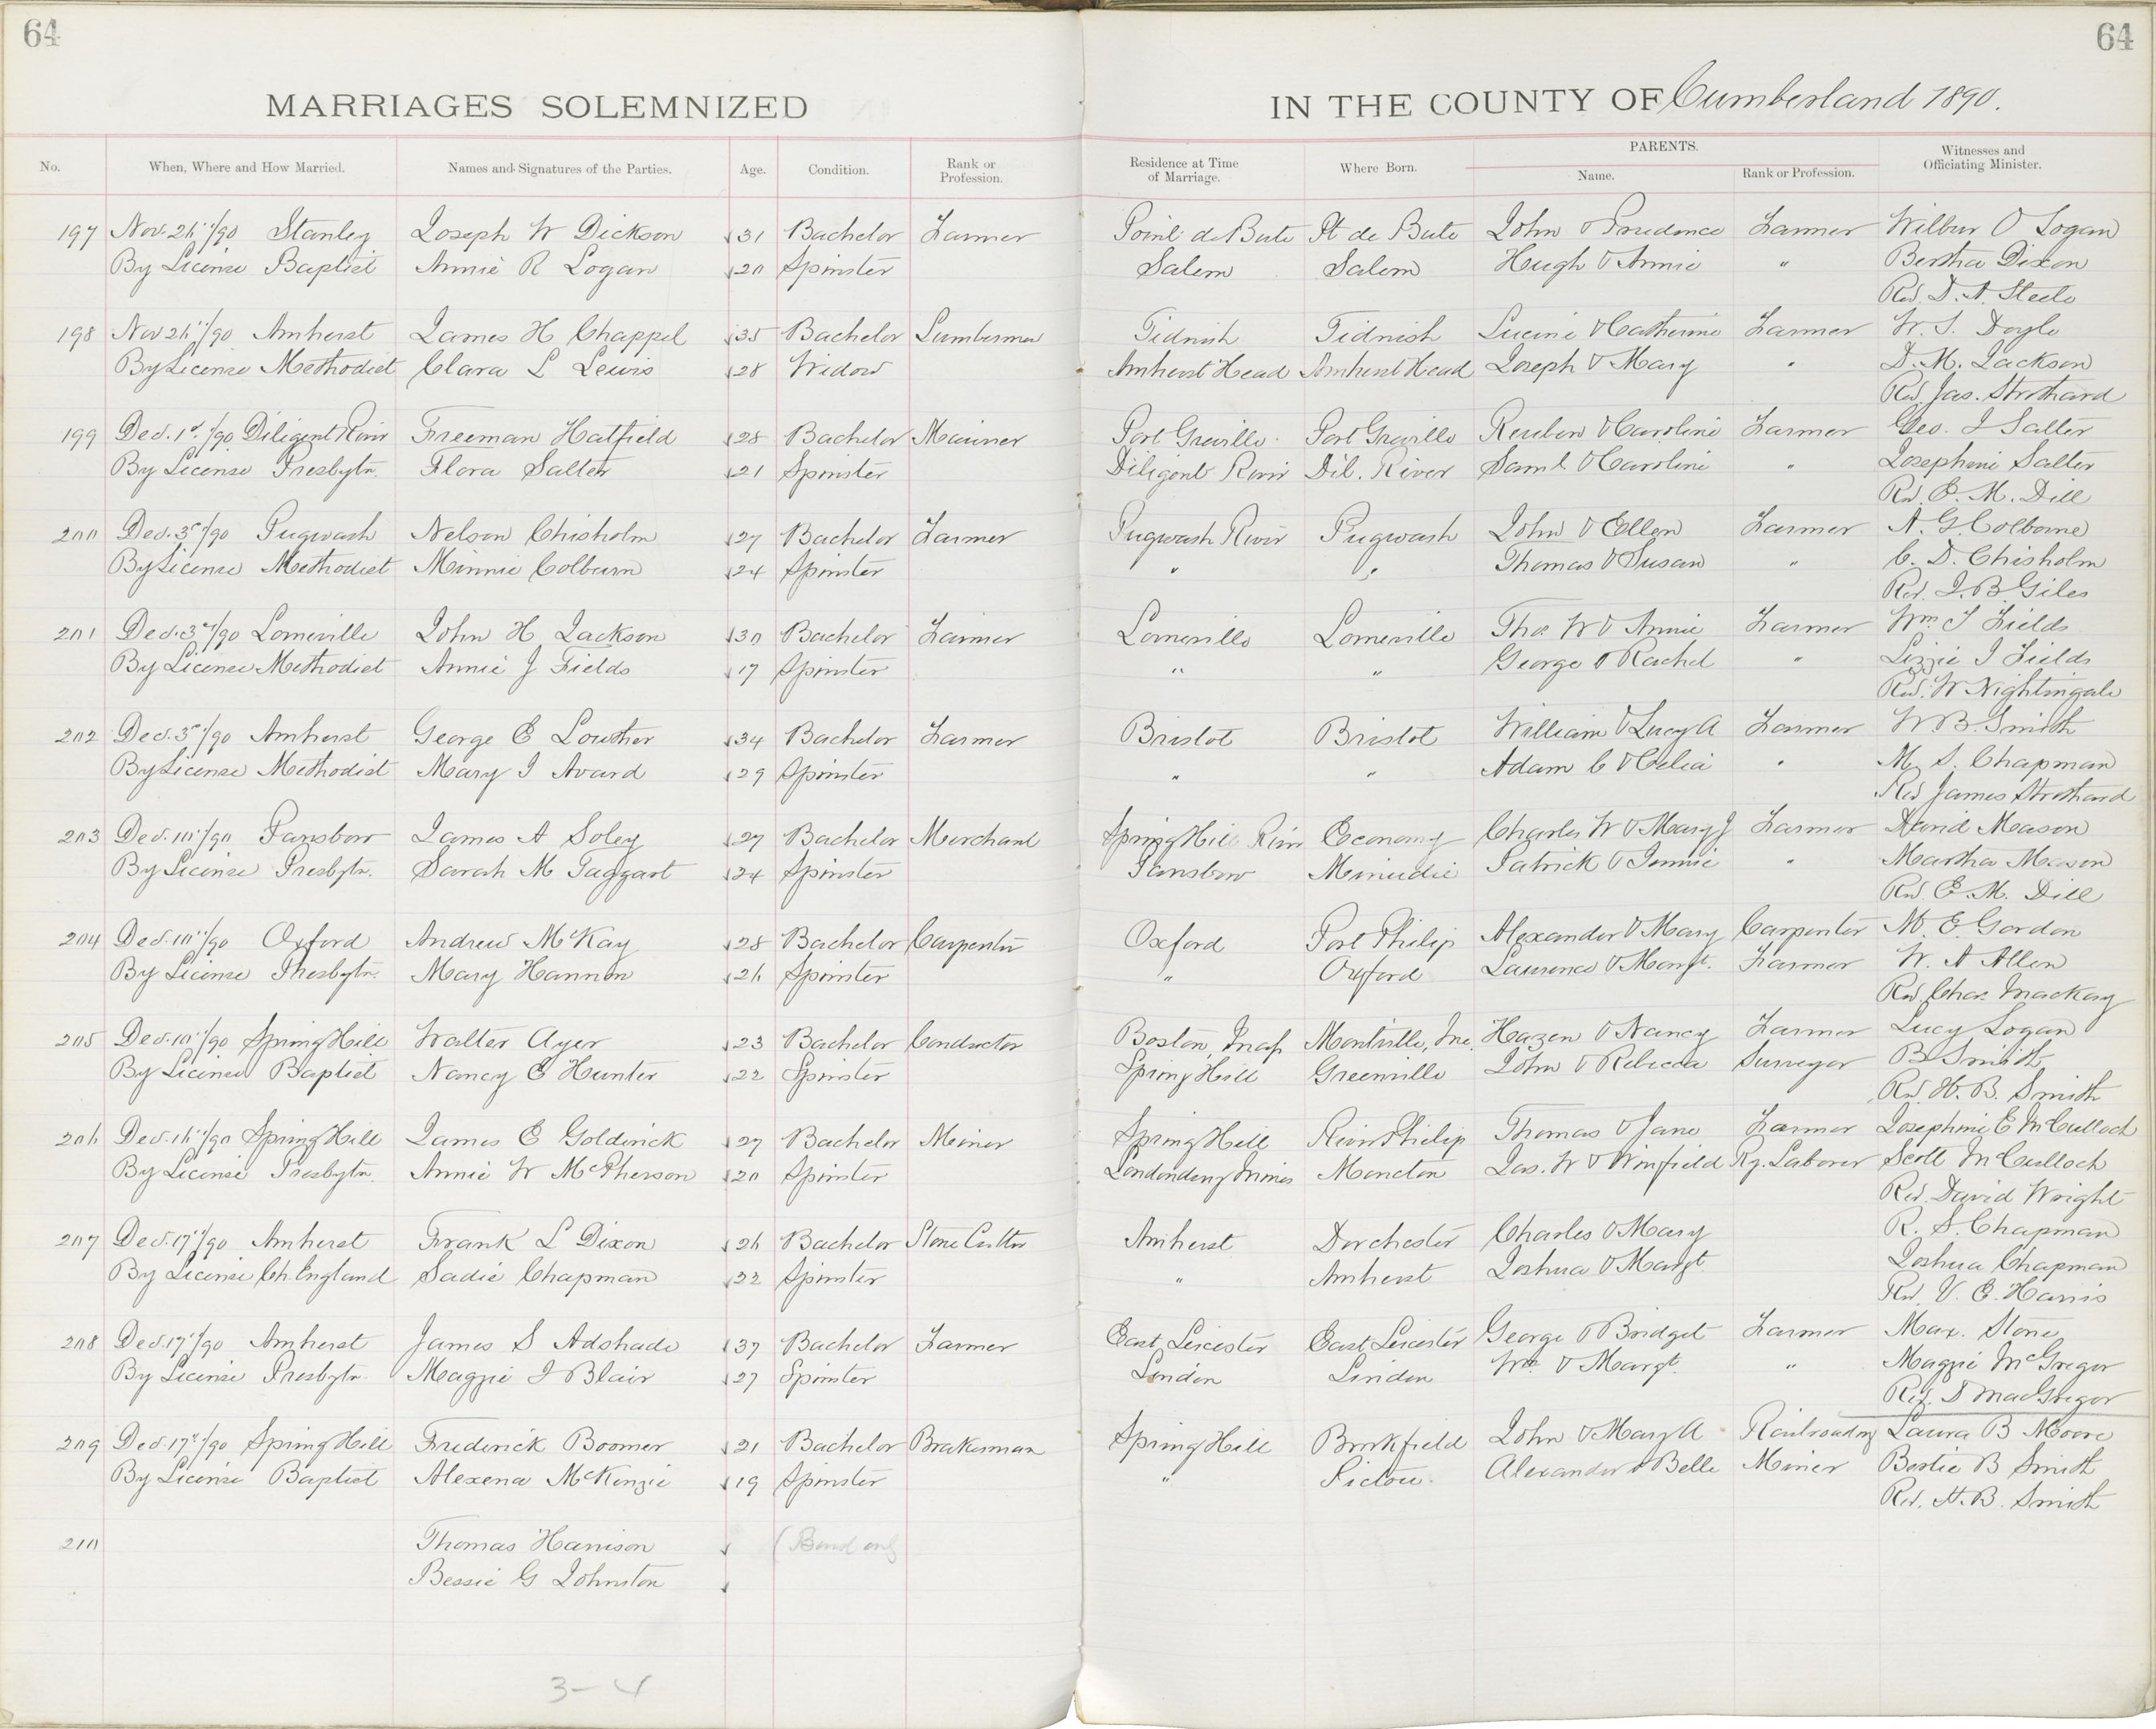 64
64
MARRIAGES SOLEMNIZED
IN THE COUNTY OF Cumberland 1890.
No. When, Where and How Married. Names and Signatures of the Parties. Age. Condition. Rank or Profession. Residence at Time of Marriage. Where Born. PARENTS. Name. Rank or Profession. Witnesses and Officiating Minister.
197 Nov. 26"/90 Stanley Joseph W Dickson 31 Bachelor Farmer Point de Bute Pt de Bute John & Prudence Farmer Wilbur O Logan
By License Baptist Annie R Logan 20 Spinster Salem Salem Hugh & Annie " Bertha Dixon
Rev. D. A. Steele
198 Nov 26"/90 Amherst James H Chappel 35 Bachelor Lumberman Tidnish Tidnish & Catherine Farmer W. S. Doyle
By License Methodist Clara L Lewis 28 Widow Amherst Head Amherst Head Joseph & Mary " D. M. Jackson
Rev. Jas. Strothard
199 Dec. 1st/90 Diligent River Freeman Hatfield 28 Bachelor Mariner Port Greville Port Greville Reuben & Caroline Farmer Geo. I Salter
By License Presbytn. Flora Salter 21 Spinster Diligent River Dil. River Saml & Caroline " Josephine Salter
Rev. E. M. Dill
200 Dec. 3rd/90 Pugwash Nelson Chisholm 27 Bachelor Farmer Pugwash River Pugwash John & Ellen Farmer A. G. Colborne
By License Methodist Minnie Colburn 24 Spinster " " Thomas & Susan " C. D. Chisholm
Rev. J. B. Giles
201 Dec. 3rd/90 Lorneville John H Jackson 30 Bachelor Farmer Lorneville Lorneville Thos W & Annie Farmer Wm J Fields
By License Methodist Annie J Fields 17 Spinster " " George & Rachel " Lizzie J Fields
Rev. W Nightingale
202 Dec. 3rd/90 Amherst George E Lowther 34 Bachelor Farmer Bristol Bristol William & Lucy A Farmer W B. Smith
By License Methodist Mary I Avard 29 Spinster " " Adam C & Celia " M. S. Chapman
Rev James Strothard
203 Dec. 10"/90 Parsboro James A Soley 27 Bachelor Merchant Spring Hill Economy Charles W & Mary J Farmer David Mason
By License Presbytn. Sarah M Taggart 24 Spinster Parsboro Minudie Patrick & Jennie " Martha Mason
Rev E. M. Dill
204 Dec. 10"/90 Oxford Andrew McKay 28 Bachelor Carpenter Oxford Port Philip Alexander & Mary Carpenter M. E. Gordon
By License Presbytn. Mary Hannon 26 Spinster " Oxford Laurence & Margt. Farmer W. A Allen
Rev. Chas. MacKay
205 Dec. 10"/90 Spring Hill Walter Ayer 23 Bachelor Conductor Boston, Mass Montville, Me. Hazen & Nancy Farmer Lucy Logan
By License Baptist Nancy E Hunter 22 Spinster Spring Hill Greenville John & Rebecca Surveyor B Smith
Rev. H. B. Smith
206 Dec. 16"/90 Spring Hill James E Golderick 27 Bachelor Miner Spring Hill River Philip Thomas & Jane Farmer Josephine E McCulloch
By License Presbytn. Annie W McPherson 20 Spinster Londonderry Mines Moncton Jas. W & Winfield Ry. Laborer Scott McCulloch
Rev. David Wright
207 Dec. 17"/90 Amherst Frank L Dixon 26 Bachelor Stone Cutter Amherst Dorchester Charles & Mary R. S. Chapman
By License Ch. England Sadie Chapman 22 Spinster " Amherst Joshua & Margt Joshua Chapman
Rev. V. E. Harris
208 Dec. 17"/90 Amherst James S Adshade 37 Bachelor Farmer East Leicester East Leicester George & Bridget Farmer Max. Stone
By License Presbytn. Maggie J Blair 27 Spinster Linden Linden Wm & Margt. " Maggie McGregor
Rev. D MacGregor
209 Dec. 17"/90 Spring Hill Frederick Boomer 21 Bachelor Brakesman Spring Hill Brookfield John & Mary A Railroading Laura B Moore
By License Baptist Alexena McKenzie 19 Spinster " Pictou. Alexander & Belle Miner Bertie B Smith
Rev. H. B. Smith
210 Thomas Harrison (Bond only
Bessie G Johnston
3-4